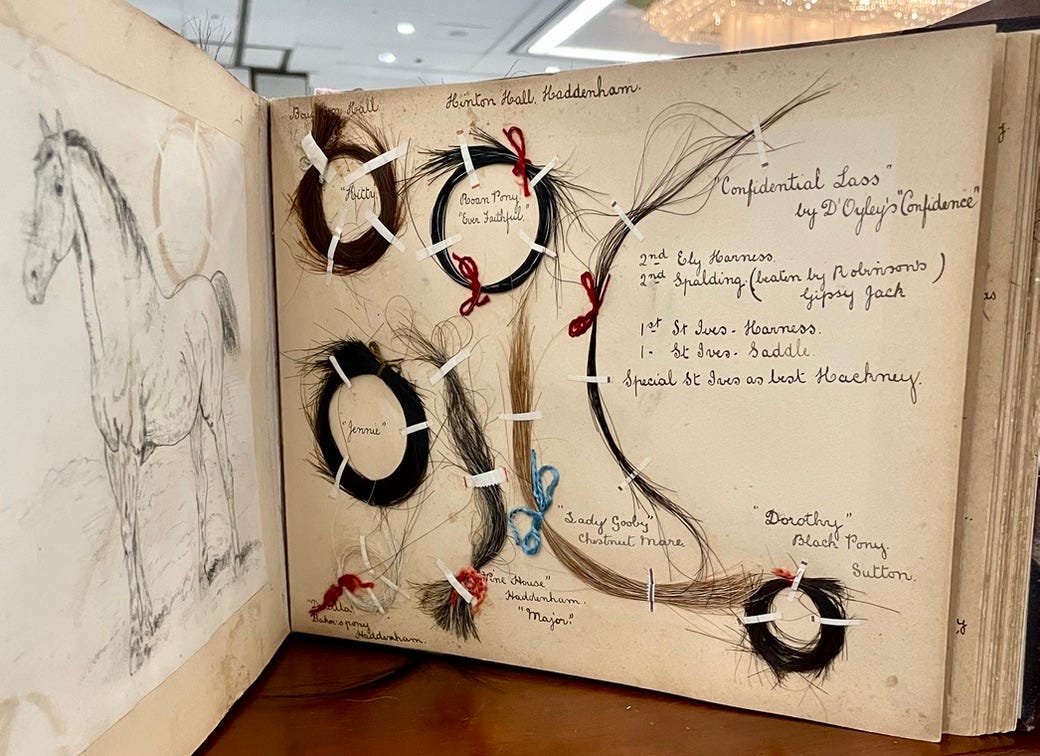 Hall
Hinton Hall. Haddenham.
"Kitty"
Roan Pony.
"Ever Faithful."
"Confidential Lass"
by D'Oyley's "Confidence"
2nd Ely Harness.
2nd Spalding. (beaten by Robinson's)
Gipsy Jack
1st St Ives - Harness.
1- St Ives - Saddle.
Special St Ives as best Hackney.
"Jennie"
"Lady Gooby"
Chestnut Mare.
"Dorothy"
Black Pony.
Sutton.
"Pine House"
Haddenham.
"Major".
Baker's pony
Haddenham.